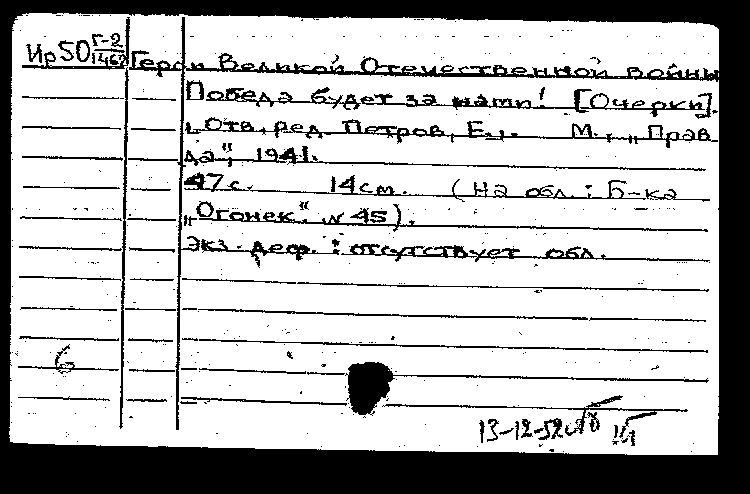 Ир50 Г-2
1462
Герои Великой Отечественной войны
Победа будет за нами! [Очерки].
„Отв. ред. Петров, Е.„. М., „Прав
да", 1941.
47с. 14см. (На обл.: Б-ка
„Огонек". № 45).
Экз. деф.: отсутствует обл.
6
13-12-52